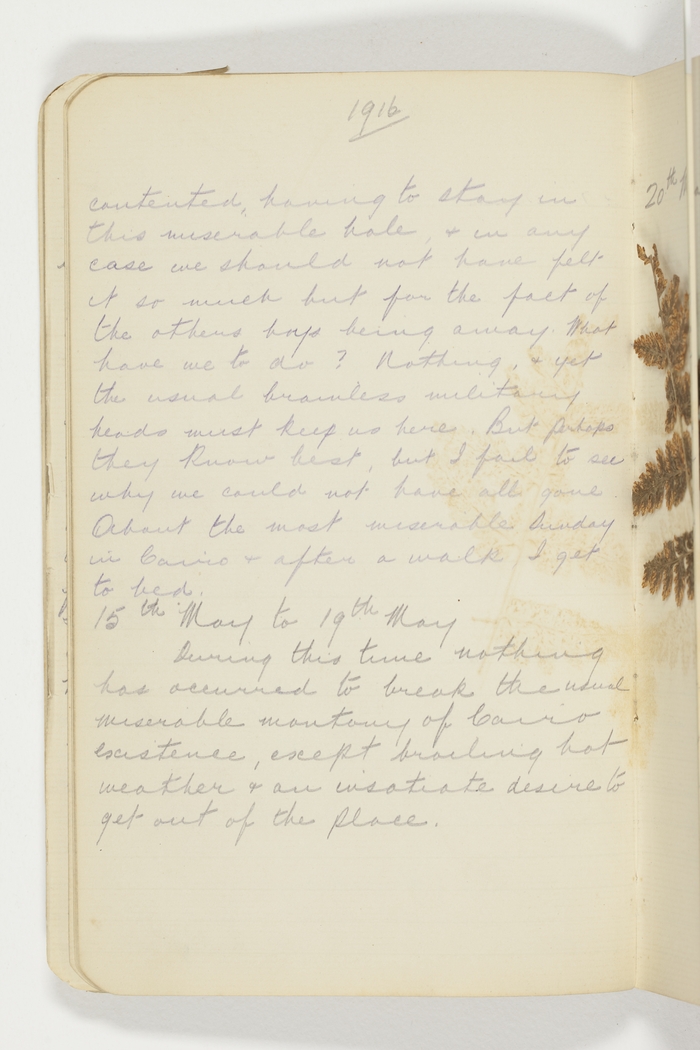 1916
contented, having to stay in
this miserable hole, & in any
case we should not have felt
it so much but for the fact of
the others boys being away. What
have we to do? Nothing, & yet
the usual brainless military
heads must keep us here. But perhaps
they know best, but I fail to see
why we could not have all gone.
About the most miserable Sunday
in Cairo & after a walk I get
to bed.
15th May to 19th May
During this time nothing
has occurred to break the usual
miserable montony of Cairo
existence, except broiling hot
weather & an insatiate desire to
get out of the place.
20th